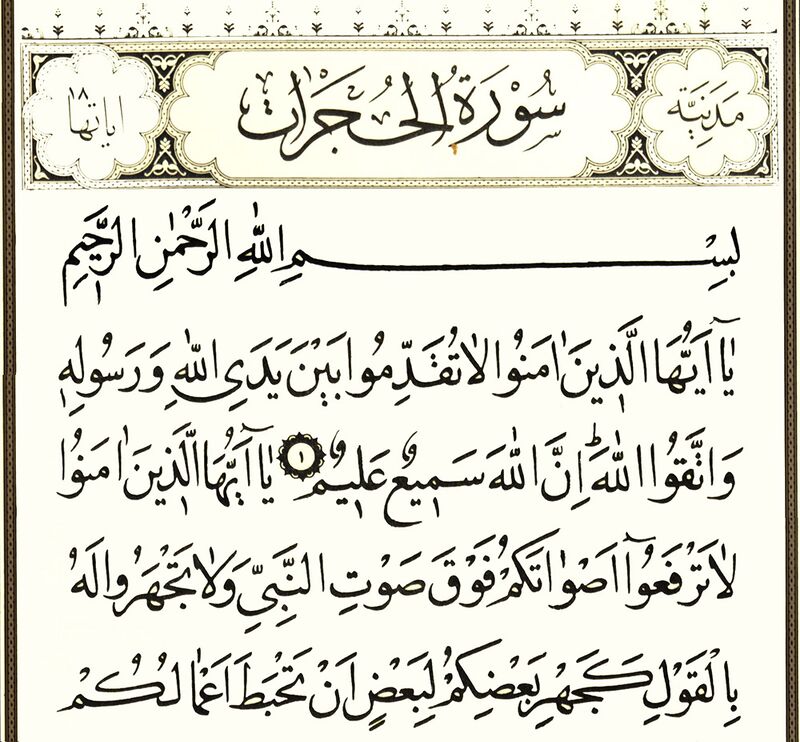 مَدَنِيَّة سُورَةُ الْحُجُرَاتِ اياتها ١٨
بِسْمِ اللّٰهِ الرَّحْمٰنِ الرَّحٖيمِ
يَٓا اَيُّهَا الَّذٖينَ اٰمَنُوا لَا تُقَدِّمُوا بَيْنَ يَدَيِ اللّٰهِ وَرَسُولِهٖ
وَاتَّقُوا اللّٰهَؕ اِنَّ اللّٰهَ سَمٖيعٌ عَلٖيمٌ ١ يَٓا اَيُّهَا الَّذٖينَ اٰمَنُوا
لَا تَرْفَعُٓوا اَصْوَاتَكُمْ فَوْقَ صَوْتِ النَّبِيِّ وَلَا تَجْهَرُوا لَهُ
بِالْقَوْلِ كَجَهْرِ بَعْضِكُمْ لِبَعْضٍ اَنْ تَحْبَطَ اَعْمَالُكُمْ